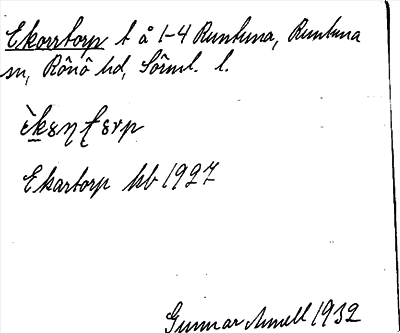 Ekorrtorp t å 1-4 Runtuna, Runtuna
sn, Rönö hd, Sörml. l.
Ekartorp kb 1927
Gunnar Amell 1932